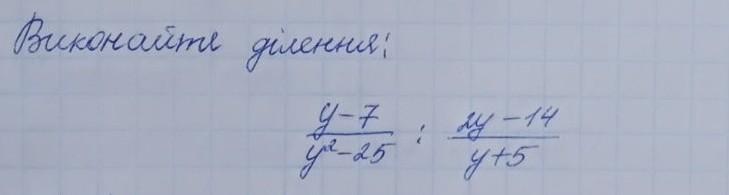 Виконайте ділення:
(y-7)/(y²-25) : (2y-14)/(y+5)